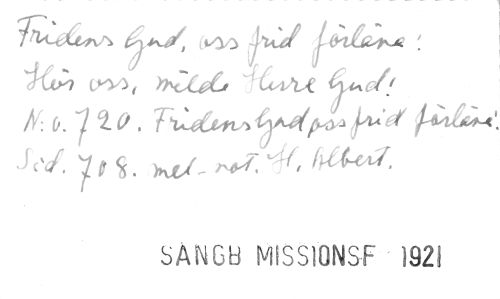 Fridens Gud, oss frid förläna!
Hör oss, milde Herre Gud!
N:o. 720. Fridens Gud oss frid förläna!
Sid. 708. mel-not. H. Albert.
SÅNGB MISSIONSF 1921